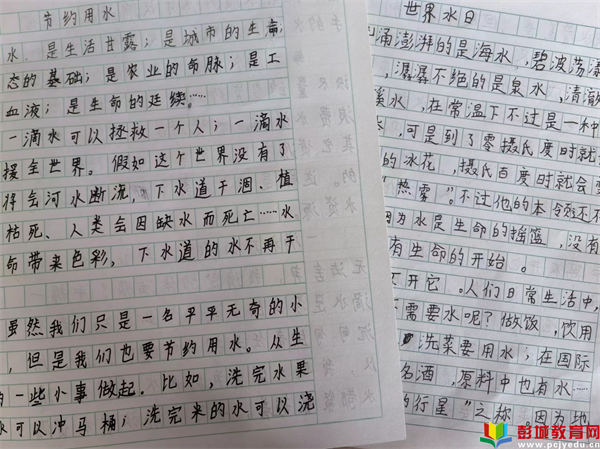 节约用水
水，是生活甘露；是城市的生命；
态的基础；是农业的命脉；是工
血液；是生命的延续……
一滴水可以拯救一个人；一滴水
援全世界。假如这个世界没有了
得会河水断流，下水道干涸、植
枯死、人类会因缺水而死亡……水
命带来色彩，下水道的水不再干
虽然我们只是一名平平无奇的小
，但是我们也要节约用水。从生
的一些小事做起。比如，洗完水果
可以冲马桶；洗完米的水可以浇
世界水日
汹涌澎湃的是海水，碧波荡漾
，潺潺不绝的是泉水，清澈
溪水，在常温下不过是一种
，可是到了零摄氏度时就
的冰花，摄氏百度时就会变
“热雾”。不过他的本领还不
因为水是生命的摇篮，没有
有生命的开始。
不开它。人们日常生活中，
不需要水呢？做饭，饮用
洗菜要用水；在国际
名酒，原料中也有水……
的行星”之称。因为地
彭城教育网
www.pcjyedu.cn